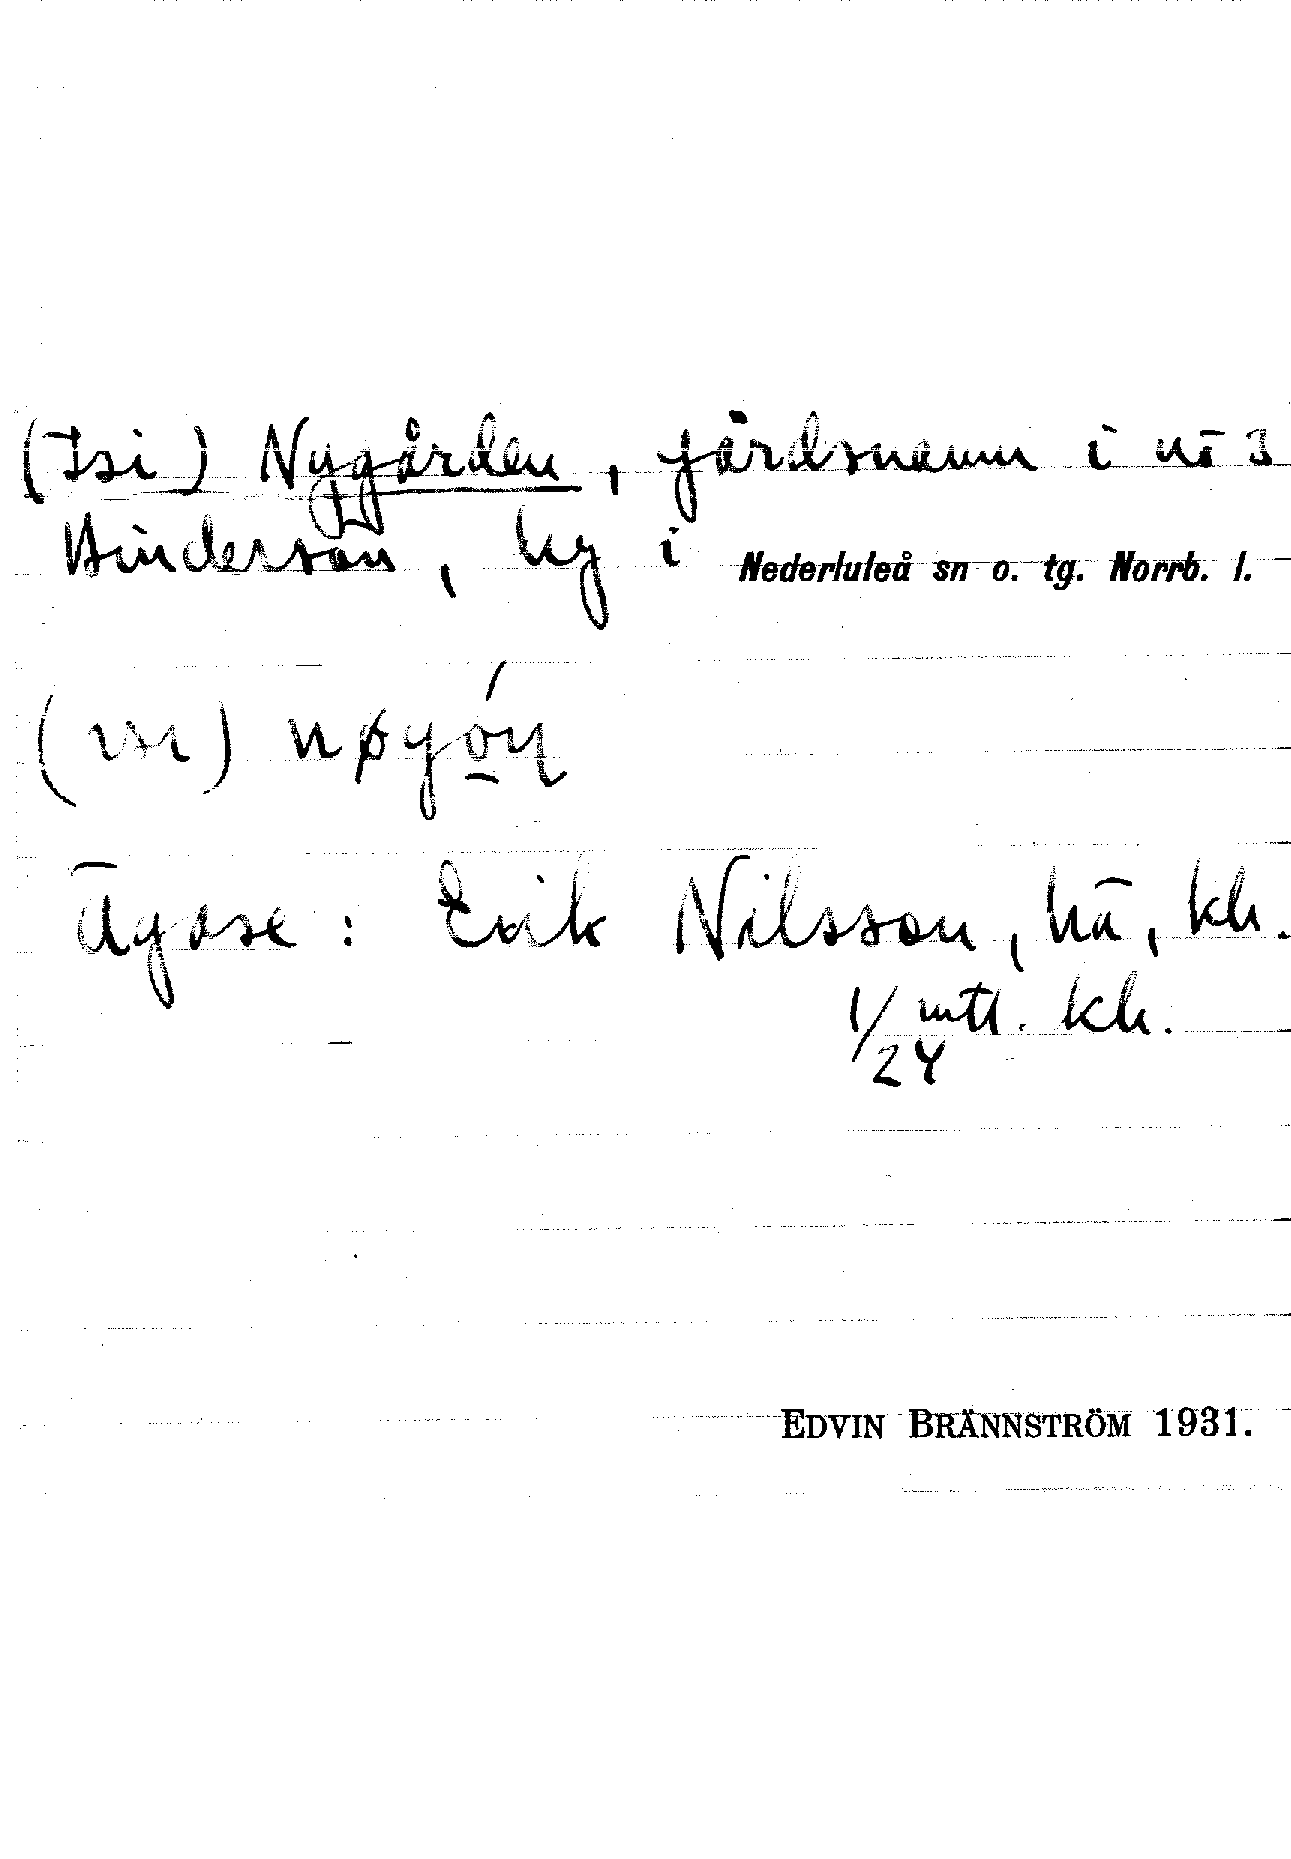 (Isi) Nygården, gårdsnamn i nō 3
Hinderson, by i Nederluleå sn o. tg. Norrb. l.
(ısı) nøyǫ́n
Ägare: Erik Nilsson, hä, kh.
1/24 mtl. kh.
EDVIN BRÄNNSTRÖM 1931.